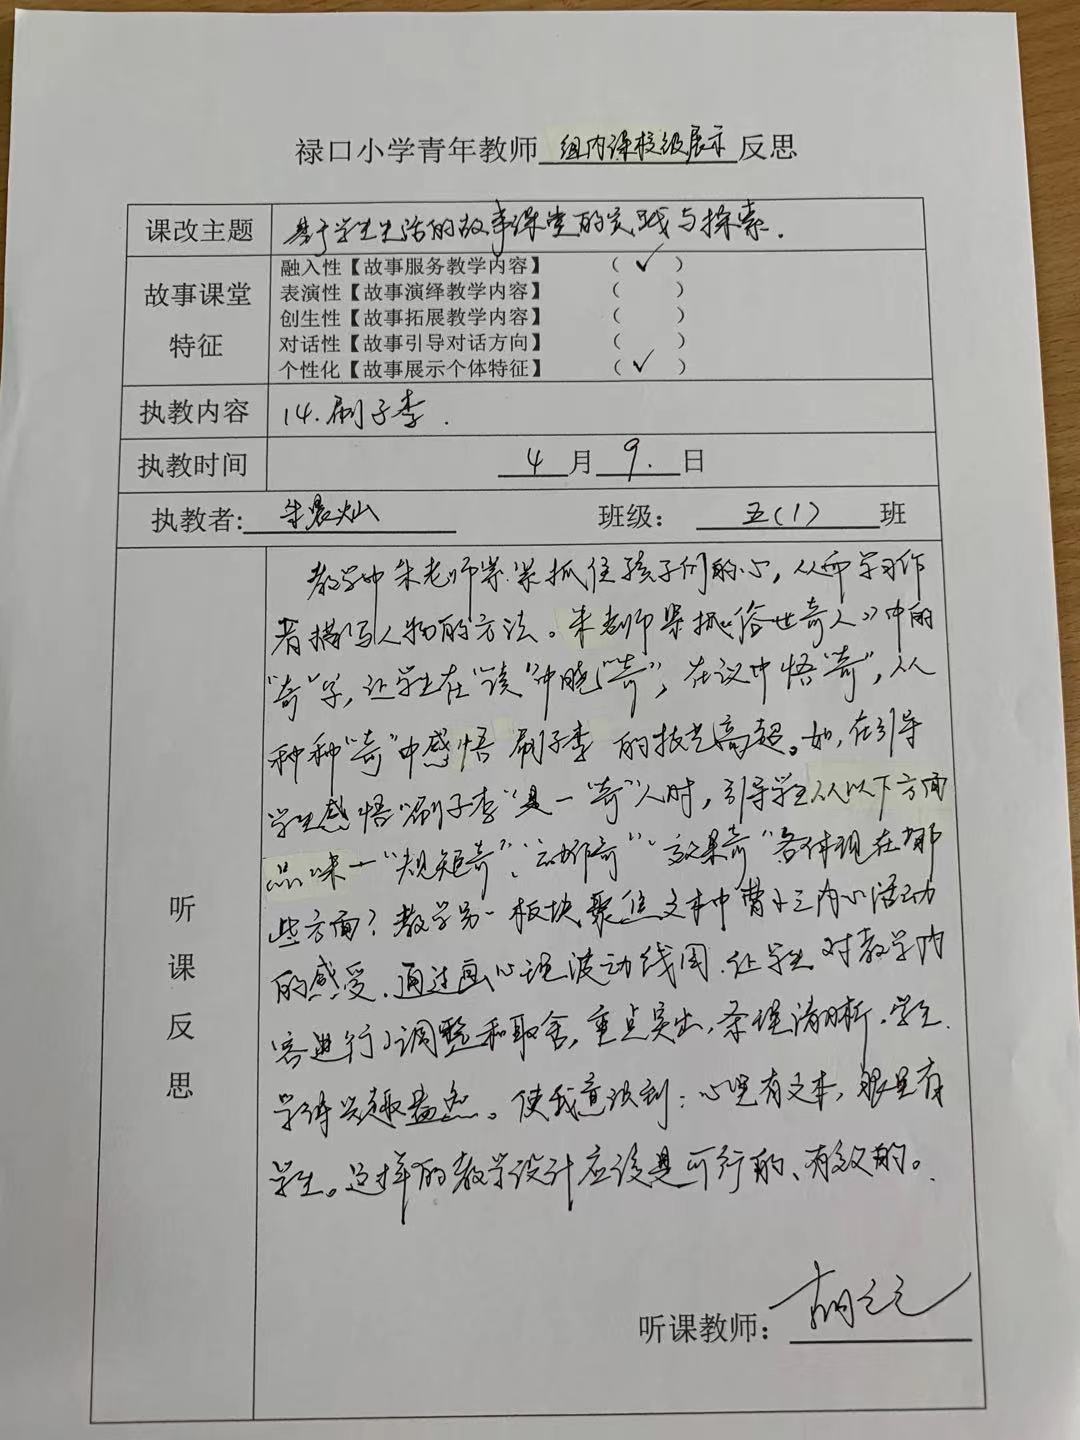 禄口小学青年教师 组内课校级展示 反思
课改主题 基于学生生活的故事课堂的实践与探索.
故事课堂特征
融入性【故事服务教学内容】 （ ✓ ）
表演性【故事演绎教学内容】 （ ）
创生性【故事拓展教学内容】 （ ）
对话性【故事引导对话方向】 （ ）
个性化【故事展示个体特征】 （ ✓ ）
执教内容 14.刷子李.
执教时间 4 月 9. 日
执教者: 朱晨灿 班级： 五(1) 班
听课反思
教学中朱老师紧紧抓住孩子们的心，从而学习作
者描写人物的方法。朱老师紧抓《俗世奇人》中的
“奇”字，让学生在“读”中晓“奇”，在议中悟“奇”，从
种种“奇”中感悟 刷子李 的技艺高超。如，在引导
学生感悟“刷子李”是一“奇”人时，引导学生从以下方面
品味一“规矩奇”、“动作奇”、“效果奇”各体现在哪
些方面？教学另一板块聚焦文本中曹小三内心活动
的感受，通过画心理波动线图，让学生对教学内
容进行了调整和取舍，重点突出，条理清晰。学生
学得兴趣盎然。使我意识到：心里有文本，眼里有
学生。这样的教学设计应该是可行的、有效的。
听课教师：